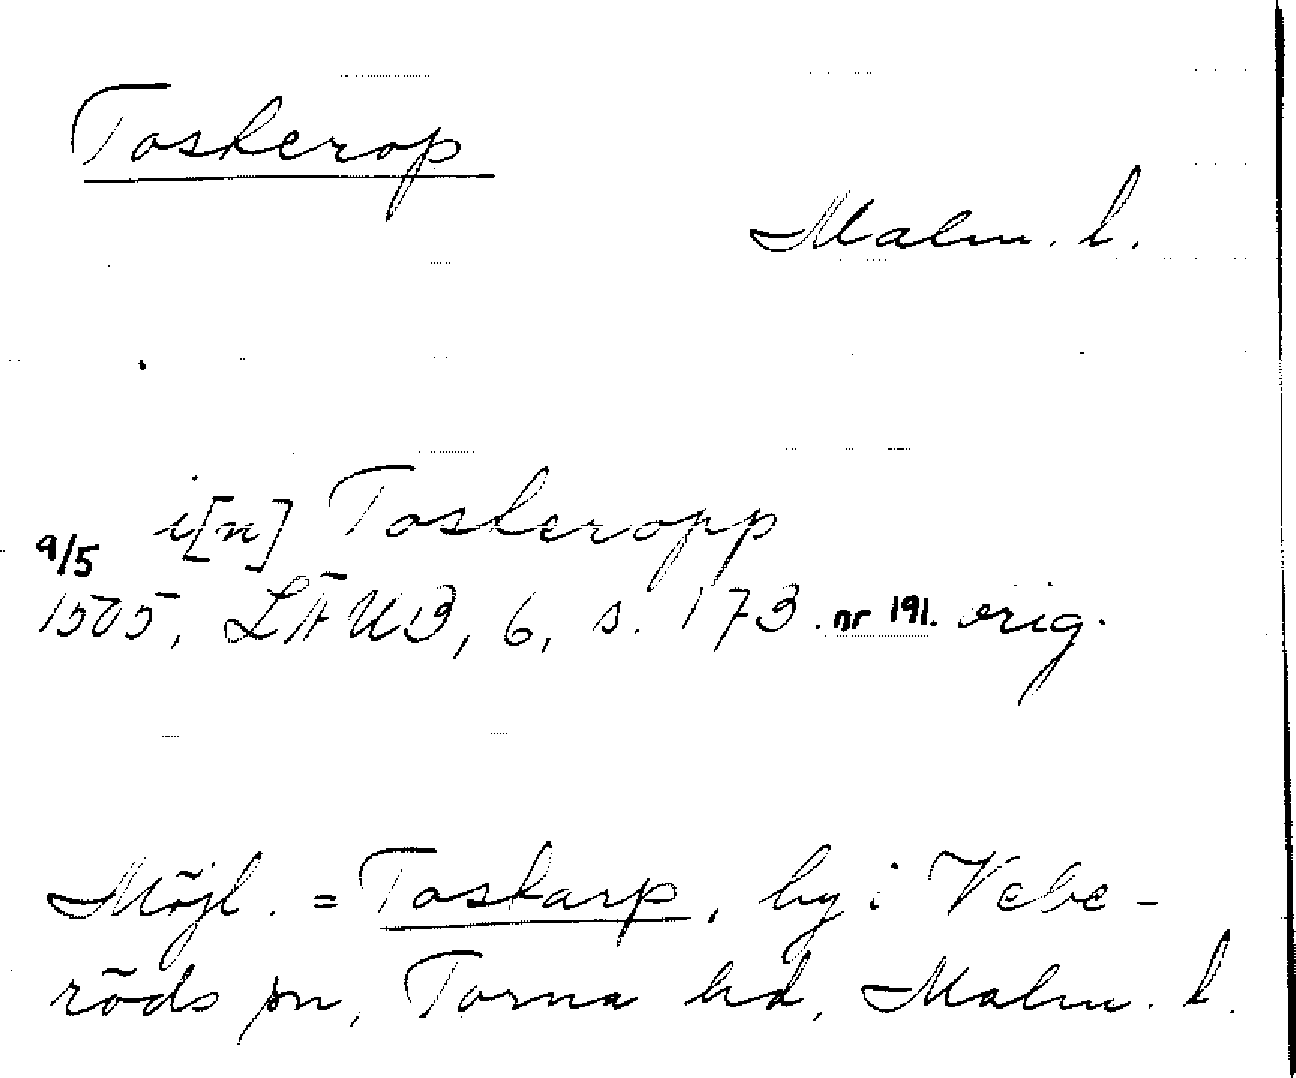 Toskerop
Malm. l.
i[n] Toskeropp
9/5
1505, LÄUB, 6, s. 173. nr 191. orig.
Möjl. = Toskarp, by i Vebe-
röds sn, Torna hd, Malm. l.